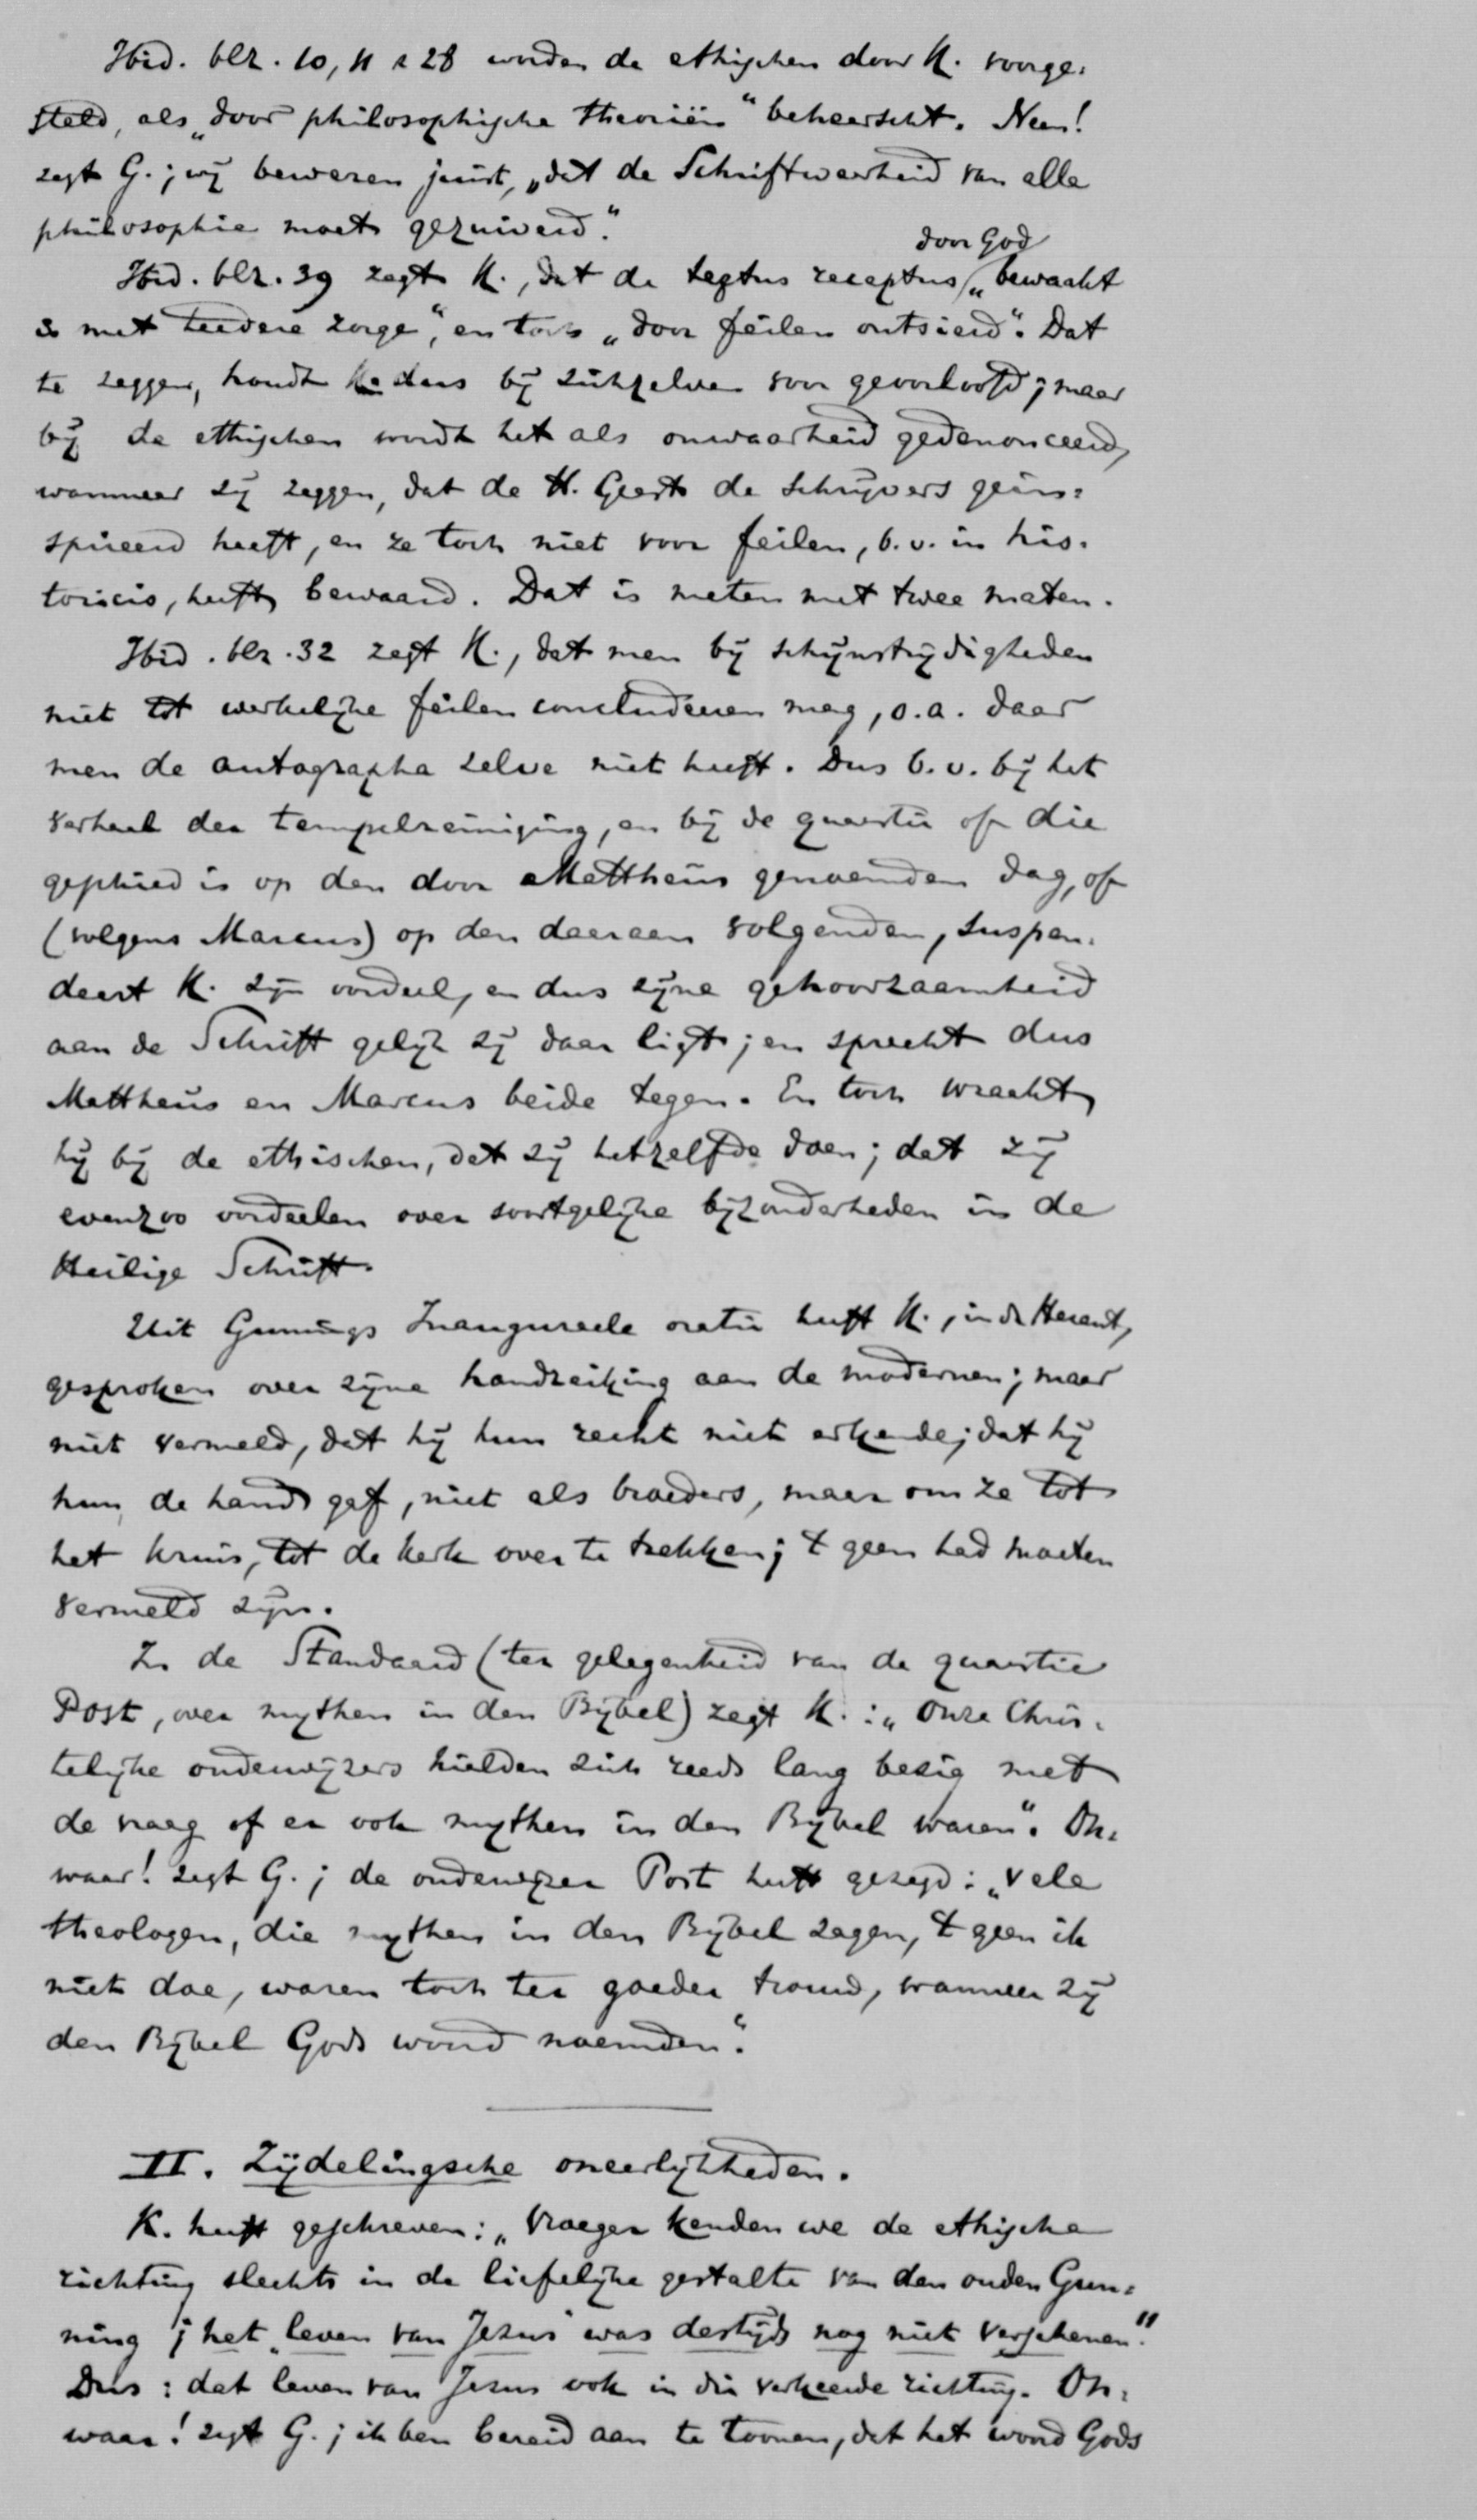 Ibid. blz. 10, 11 & 28 worden de ethischen door K. voorge-
steld, als „door philosophische theoriën“ beheerscht. Neen!
zegt G.; wij beweren juist, „dat de Schriftwaarheid van alle
philosophie moet gezuiverd.“
door God
Ibid. blz. 39 zegt K., dat de textus receptus „bewaakt
is met teedere zorge“, en toch „door feilen ontsierd“. Dat
te zeggen, houdt K. dus bij zichzelven voor geoorloofd; maar
bij de ethischen wordt het als onwaarheid gedenonceerd,
wanneer zij zeggen, dat de H. Geest de schrijvers geïn-
spireerd heeft, en ze toch niet voor feilen, b.v. in his-
toricis, heeft bewaard. Dat is meten met twee maten.
Ibid. blz. 32 zegt K., dat men bij schijnstrijdigheden
niet tot werkelijke feilen concludeeren mag, o.a. daar
men de autographa zelve niet heeft. Dus b.v. bij het
verhaal der tempelreiniging, en bij de quaestie of die
geschied is op den door Mattheüs genoemden dag, of
(volgens Marcus) op den daaraan volgenden, suspen-
deert K. zijn oordeel, en dus zijne gehoorzaamheid
aan de Schrift gelijk zij daar ligt; en spreekt dus
Mattheüs en Marcus beide tegen. En toch wraakt
hij bij de ethischen, dat zij hetzelfde doen; dat zij
evenzoo oordeelen over soortgelijke bijzonderheden in de
Heilige Schrift.
Uit Gunnings Inaugureele oratie heeft K., in de Heraut,
gesproken over zijne handreiking aan de modernen; maar
niet vermeld, dat hij hun recht niet erkende; dat hij
hun de hand gaf, niet als broeders, maar om ze tot
het kruis, tot de kerk over te trekken; 't geen had moeten
vermeld zijn.
In de Standaard (ter gelegenheid van de quaestie
Post, over mythen in den Bijbel) zegt K.: „Onze Chris-
telijke onderwijzers hielden zich reeds lang bezig met
de vraag of er ook mythen in den Bijbel waren“. On-
waar! zegt G.; de onderwijzer Post heeft gezegd: „Vele
theologen, die mythen in den Bijbel zagen, 't geen ik
niet doe, waren toch ter goeder trouw, wanneer zij
den Bijbel Gods woord noemden.“
II. Zijdelingsche oneerlijkheden.
K. heeft geschreven: „Vroeger kenden we de ethische
richting slechts in de liefelijke gestalte van den ouden Gun-
ning; het „leven van Jezus“ was destijds nog niet verschenen.“
Dus: dat leven van Jezus ook in die verkeerde richting. On-
waar! zegt G.; ik ben bereid aan te toonen, dat het woord Gods